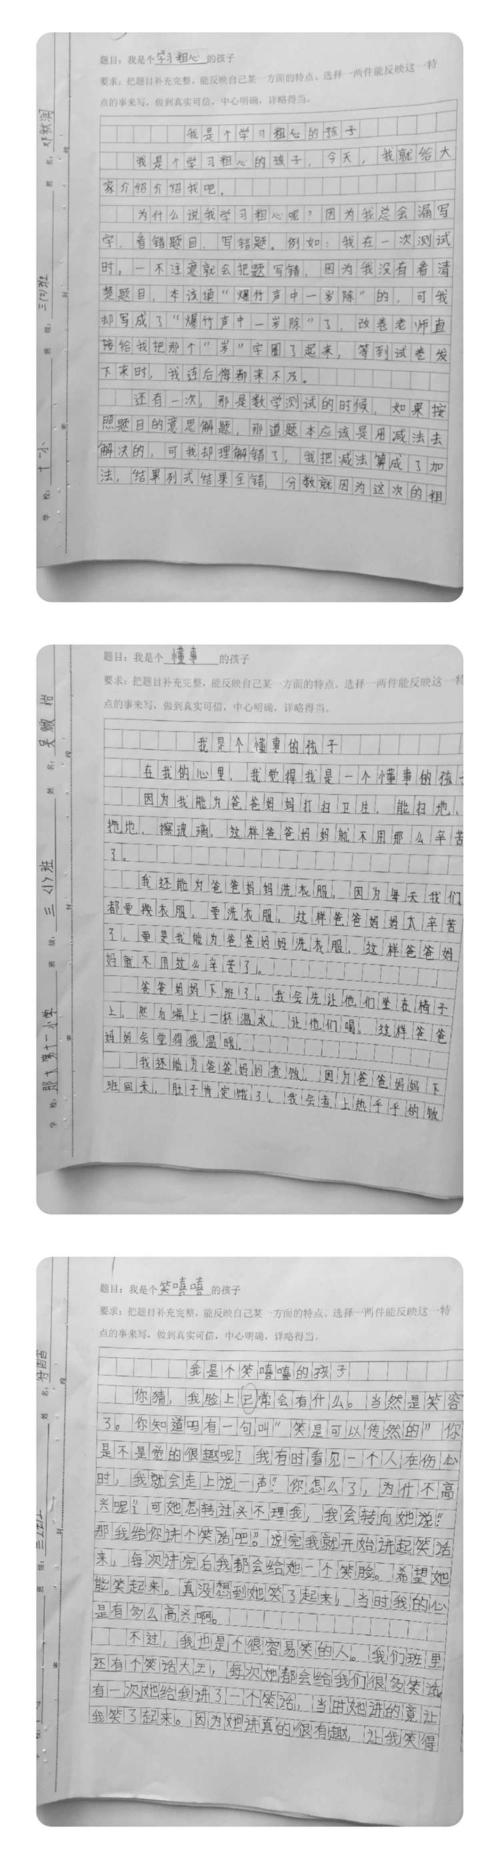 题目：我是个学习粗心的孩子
要求：把题目补充完整，能反映自己某一方面的特点。选择一两件能反映这一特
点的事来写，做到真实可信，中心明确，详略得当。
我是个学习粗心的孩子
我是个学习粗心的孩子，今天，我就给大
家介绍介绍我吧。
为什么说我学习粗心呢？因为我总会漏写
字，看错题目，写错题。例如：我在一次测试
时，一不注意就会把题写错，因为我没有看清
楚题目，本该填“爆竹声中一岁除”的，可我
却写成了“爆竹声中一岁除”了，改卷老师直
接给我把那个“岁”字圈了起来，等到试卷发
下来时，我连后悔都来不及。
还有一次，那是数学测试的时候，如果按
照题目的意思解题，那道题本应该是用减法去
解决的，可我却理解错了，我把减法算成了加
法，结果列式结果全错，分数就因为这次的粗
题目：我是个懂事的孩子
要求：把题目补充完整，能反映自己某一方面的特点。选择一两件能反映这一特
点的事来写，做到真实可信，中心明确，详略得当。
我是个懂事的孩子
在我的心里，我觉得我是一个懂事的孩子
因为我能为爸爸妈妈打扫卫生，能扫地、
拖地、擦玻璃，这样爸爸妈妈就不用那么辛苦
了。
我还能为爸爸妈妈洗衣服，因为每天我们
都要换衣服，要洗衣服，这样爸爸妈妈太辛苦
了，要是我能为爸爸妈妈洗衣服，这样爸爸妈
妈就不用这么辛苦了。
爸爸妈妈下班了，我会先让他们坐在椅子
上，然后端上一杯温水，让他们喝，这样爸爸
妈妈会觉得很温暖。
我还能为爸爸妈妈煮饭，因为爸爸妈妈下
班回来，肚子肯定饿了，我会煮上热乎乎的饭
题目：我是个笑嘻嘻的孩子
要求：把题目补充完整，能反映自己某一方面的特点。选择一两件能反映这一特
点的事来写，做到真实可信，中心明确，详略得当。
我是个笑嘻嘻的孩子
你猜，我脸上已常会有什么。当然是笑容
了。你知道吗有一句叫“笑是可以传然的”你
是不是觉的很趣呢？我有时看见一个人在伤心
时，我就会走上说一声：“你怎么了，为什不高
兴呢？”可她怎转过头不理我，我会转向她说：“
那我给你讲个笑话吧”。说完我就开始讲起笑话
来，每次讲完后我都会给她一个笑脸。希望她
能笑起来。真没想到她笑了起来，当时我的心
是有多么高兴啊。
不过，我也是个很容易笑的人。我们班里
还有个笑话大王，每次她都会给我们很多笑话
有一次她给我讲了一个笑话，当时她讲的竟让
我笑了起来。因为她讲真的很有趣，让我笑得